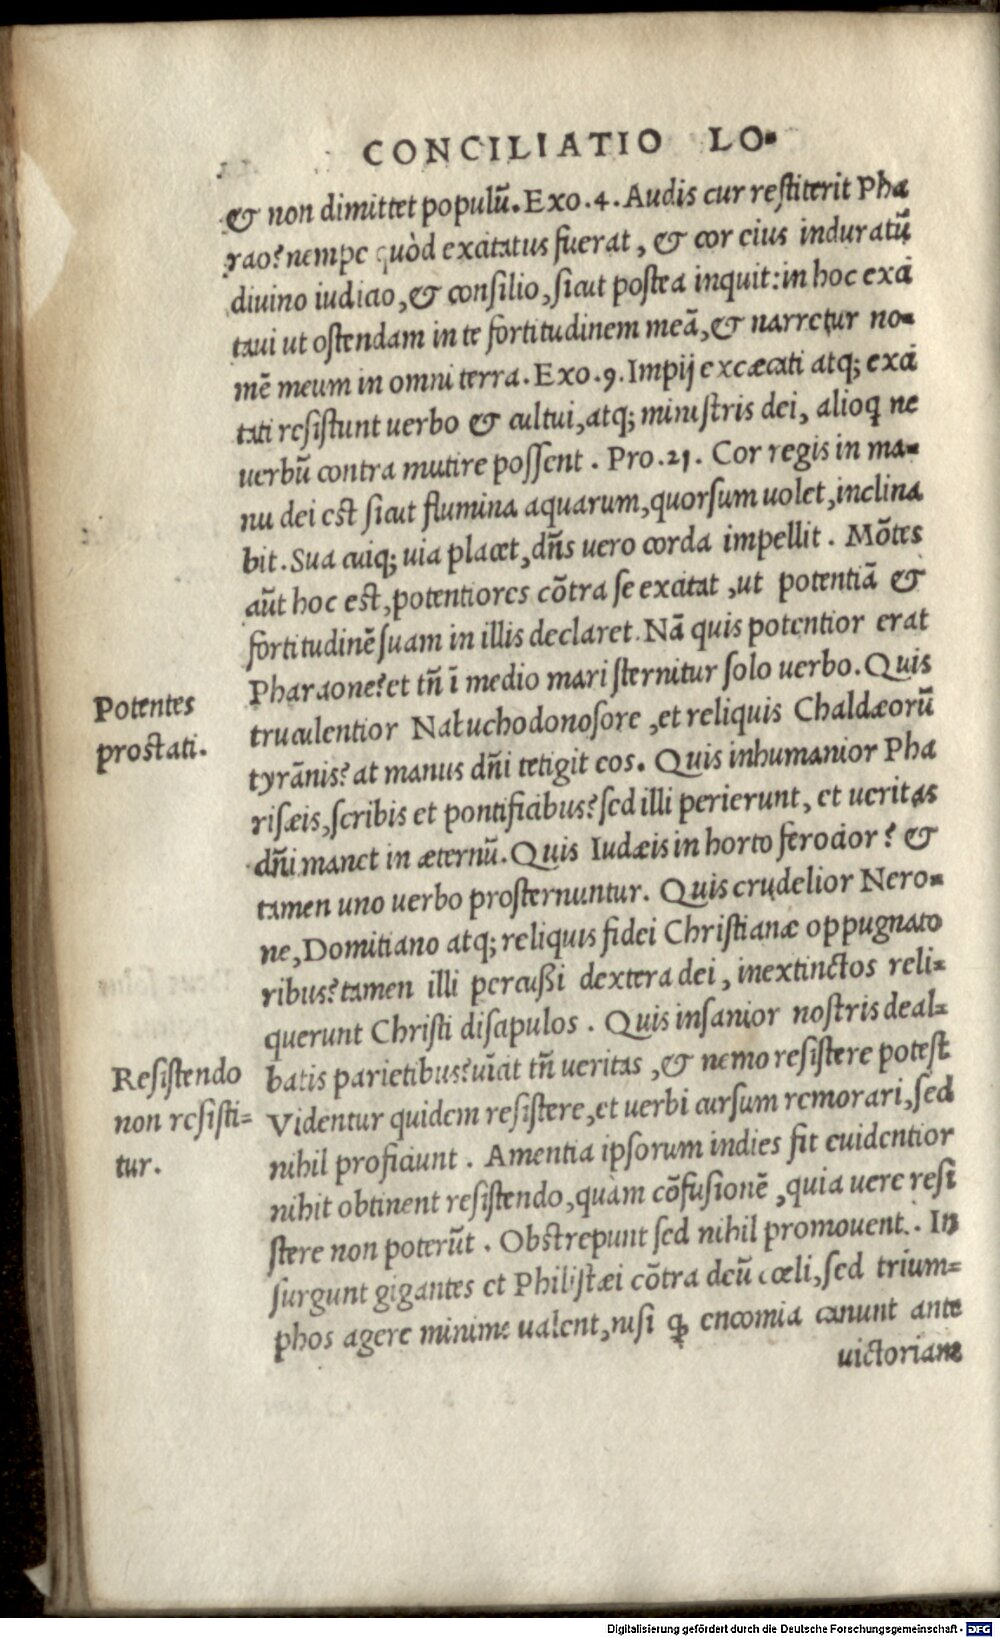 CONCILIATIO LO-
& non dimittet populū. Exo. 4. Audis cur restiterit Pha
rao? nempe quòd excitatus fuerat, & cor eius induratū
diuino iudicio, & consilio, sicut postea inquit: in hoc exci
taui ut ostendam in te fortitudinem meā, & narretur no-
mē meum in omni terra. Exo. 9. Impij excæcati atq; exci
tati resistunt uerbo & cultui, atq; ministris dei, alioq ne
uerbū contra mutire possent. Pro. 21. Cor regis in ma-
nu dei est sicut flumina aquarum, quorsum uolet, inclina
bit. Sua cuiq; uia placet, dñs uero corda impellit. Mōtes
aūt hoc est, potentiores cōtra se excitat, ut potentiā &
fortitudinē suam in illis declaret. Nā quis potentior erat
Pharaone? et tñ ī medio mari sternitur solo uerbo. Quis
Potentes
prostati.
truculentior Nabuchodonosore, et reliquis Chaldæorū
tyrānis? at manus dñi tetigit eos. Quis inhumanior Pha
risæis, scribis et pontificibus? sed illi perierunt, et ueritas
dñi manet in æternū. Quis Iudæis in horto ferocior? &
tamen uno uerbo prosternuntur. Quis crudelior Nero-
ne, Domitiano atq; reliquis fidei Christianæ oppugnato
ribus? tamen illi percußi dextera dei, inextinctos reli-
querunt Christi discipulos. Quis insanior nostris deal-
batis parietibus? uīcit tñ ueritas, & nemo resistere potest
Resistendo
non resisti-
tur.
Videntur quidem resistere, et uerbi cursum remorari, sed
nihil proficiunt. Amentia ipsorum indies fit euidentior
nihit obtinent resistendo, quàm cōfusionē, quia uere resi
stere non poterūt. Obstrepunt sed nihil promouent. In
surgunt gigantes et Philistæi cōtra deū cœli, sed trium-
phos agere minime ualent, nisi ꝙ encomia canunt ante
uictoriam
Digitalisierung gefördert durch die Deutsche Forschungsgemeinschaft - DFG